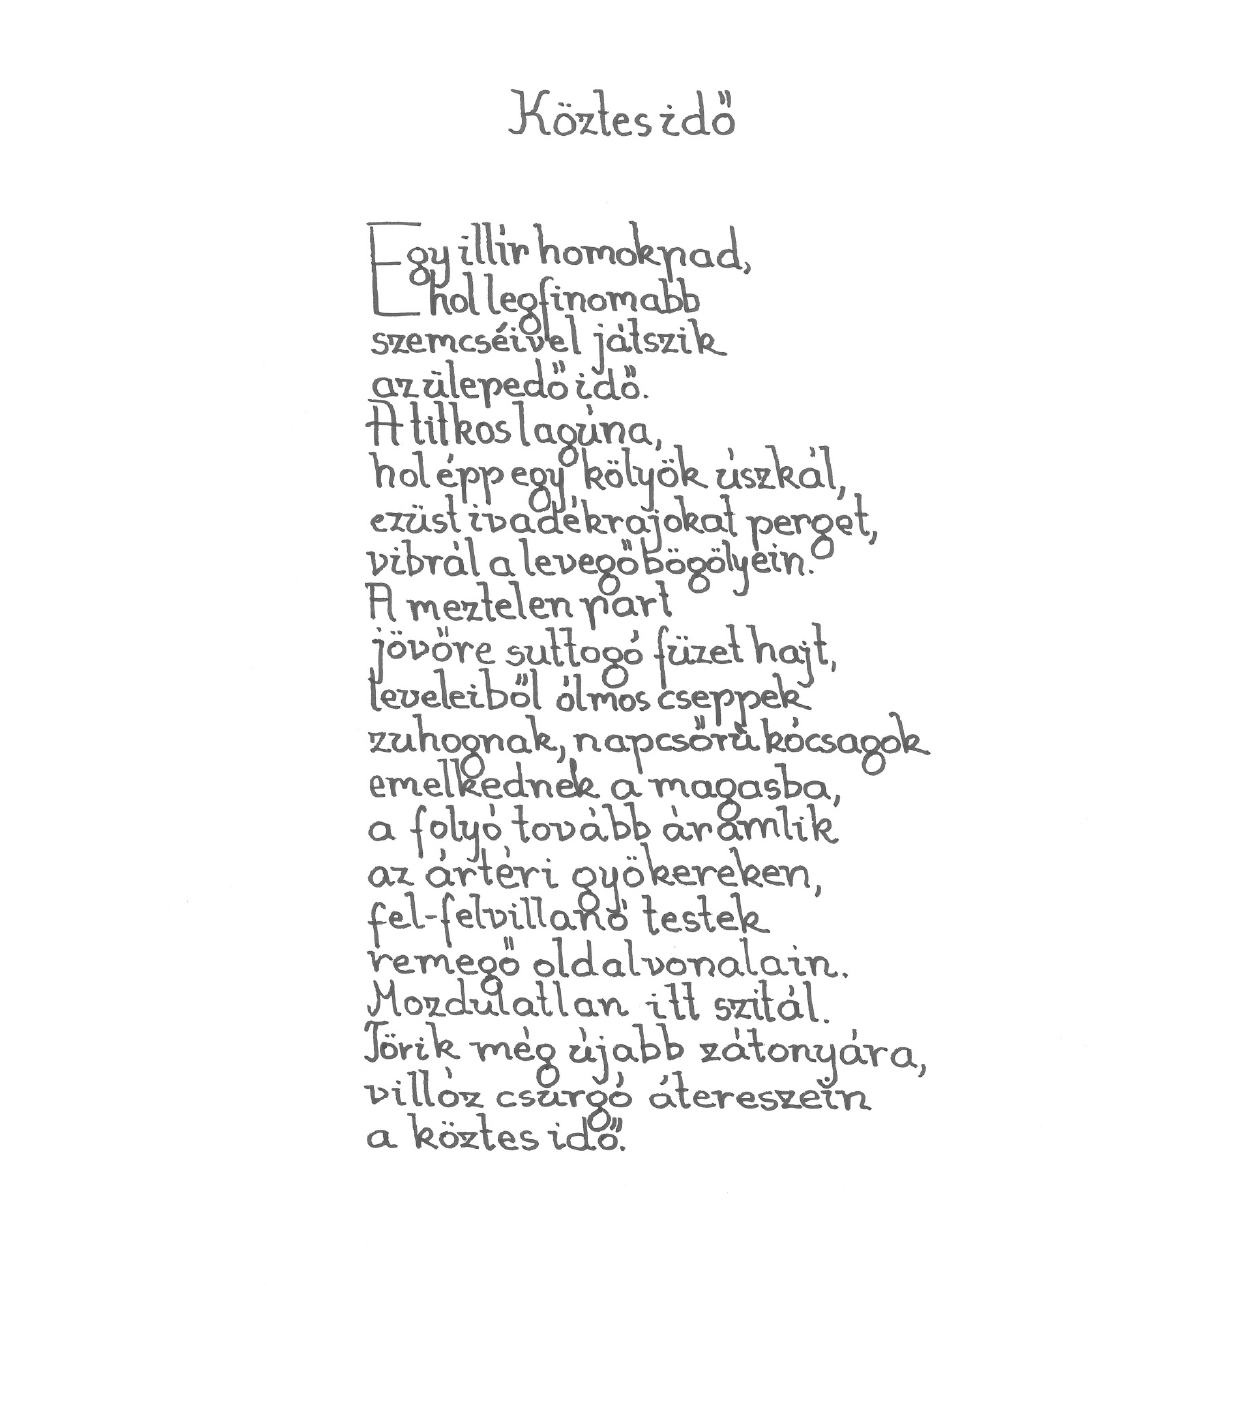 Köztes idő
Egy illír homokpad,
hol legfinomabb
szemcséivel játszik
az ülepedő idő.
A titkos lagúna,
hol épp egy kölyök úszkál,
ezüst ivadékrajokat perget,
vibrál a levegő bögölyein.
A meztelen part
jövőre suttogó füzet hajt,
leveleiből ólmos cseppek
zuhognak, napcsőrű kócsagok
emelkednek a magasba,
a folyó tovább áramlik
az ártéri gyökereken,
fel-felvillanó testek
remegő oldalvonalain.
Mozdulatlan itt szitál.
Törik még újabb zátonyára,
villóz csurgó átereszein
a köztes idő.